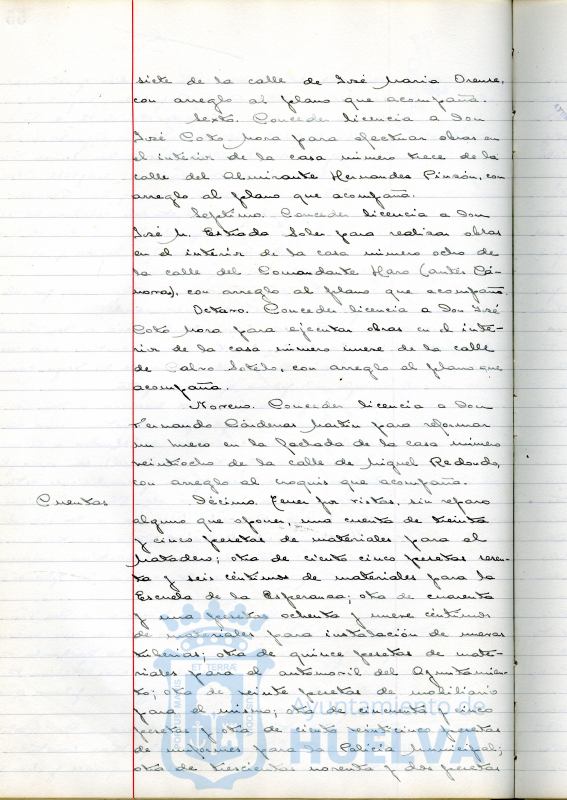 siete de la calle de José Maria Orense,
con arreglo al plano que acompaña.
Sexto. Conceder licencia a Don
José Coto Mora para efectuar obras en
el interior de la casa número trece de la
calle del Almirante Hernandes Pinzón, con
arreglo al plano que acompaña.
Septimo. Conceder licencia a Don
José M. Estrada Soler para realizar obras
en el interior de la casa número ocho de
la calle del Comandante Haro (antes Cá-
novas), con arreglo al plano que acompaña.
Octavo. Conceder licencia a Don José
Coto Mora para ejecutar obras en el inte-
rior de la casa número nueve de la calle
de Calvo Sotelo, con arreglo al plano que
acompaña.
Noveno. Conceder licencia a Don
Fernando Cárdenas Martín para reformar
un hueco en la fachada de la casa número
veintiocho de la calle de Miguel Redondo,
con arreglo al croquis que acompaña.
Cuentas
Décimo. Tener por vistas, sin reparo
alguno que oponer, una cuenta de treinta
y cinco pesetas de materiales para el
Matadero; otra de ciento cinco pesetas seten-
ta y seis céntimos de materiales para la
Escuela de la Esperanza; otra de cuarenta
y una pesetas ochenta y nueve céntimos
de materiales para instalación de nuevas
tuberias; otra de quince pesetas de mate-
riales para el automovil del Ayuntamien-
to; otra de veinte pesetas de mobiliario
para el mismo; otra de cincuenta y cinco
pesetas y otra de ciento veinticinco pesetas
de uniformes para la Policia Municipal;
otra de trescientas noventa y dos pesetas
Ayuntamiento de
HUELVA